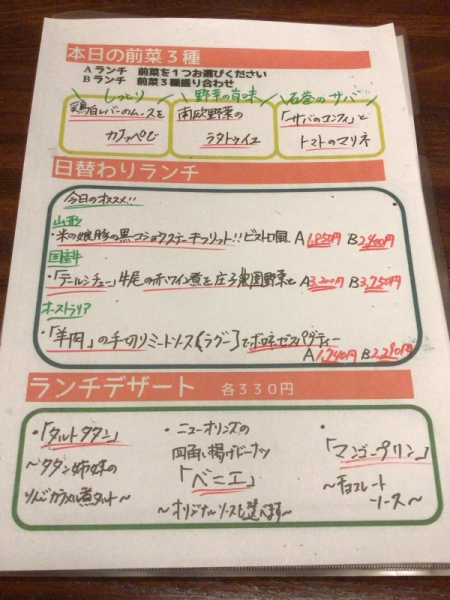 本日の前菜3種
Aランチ 前菜を1つお選びください
Bランチ 前菜3種盛り合わせ
しっとり
鶏白レバーのムースを
カナッペで
野菜の旨味
南欧野菜の
ラタトゥイユ
石巻のサバ
「サバのコンフィ」と
トマトのマリネ
日替わりランチ
今日のオススメ!!
山形
・米の娘豚の黒コショウステーキフリット!! ビストロ風 A 1,850円 B 2,400円
国産牛
・「テールシチュー」牛尾の赤ワイン煮を庄子農園野菜と A 3,200円 B 3,750円
オーストラリア
・「羊肉」の手切りミートソース(ラグー)でボロネーゼスパゲティー
A 1,740円 B 2,290円
ランチデザート 各330円
・「タルトタタン」
~タタン姉妹の
りんごカラメル煮タルト~
・ニューオリンズの
四角い揚げドーナツ
「ベニエ」
~オリジナルソースを選べます~
・
「マンゴープリン」
~チョコレート
ソース~